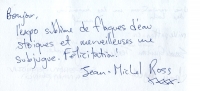 Bonjour,
l'expo sublime de flaques d'eau
stoïques et merveilleuses me
subjugue. Félicitation!
Jean-Michel Ross
xxxx